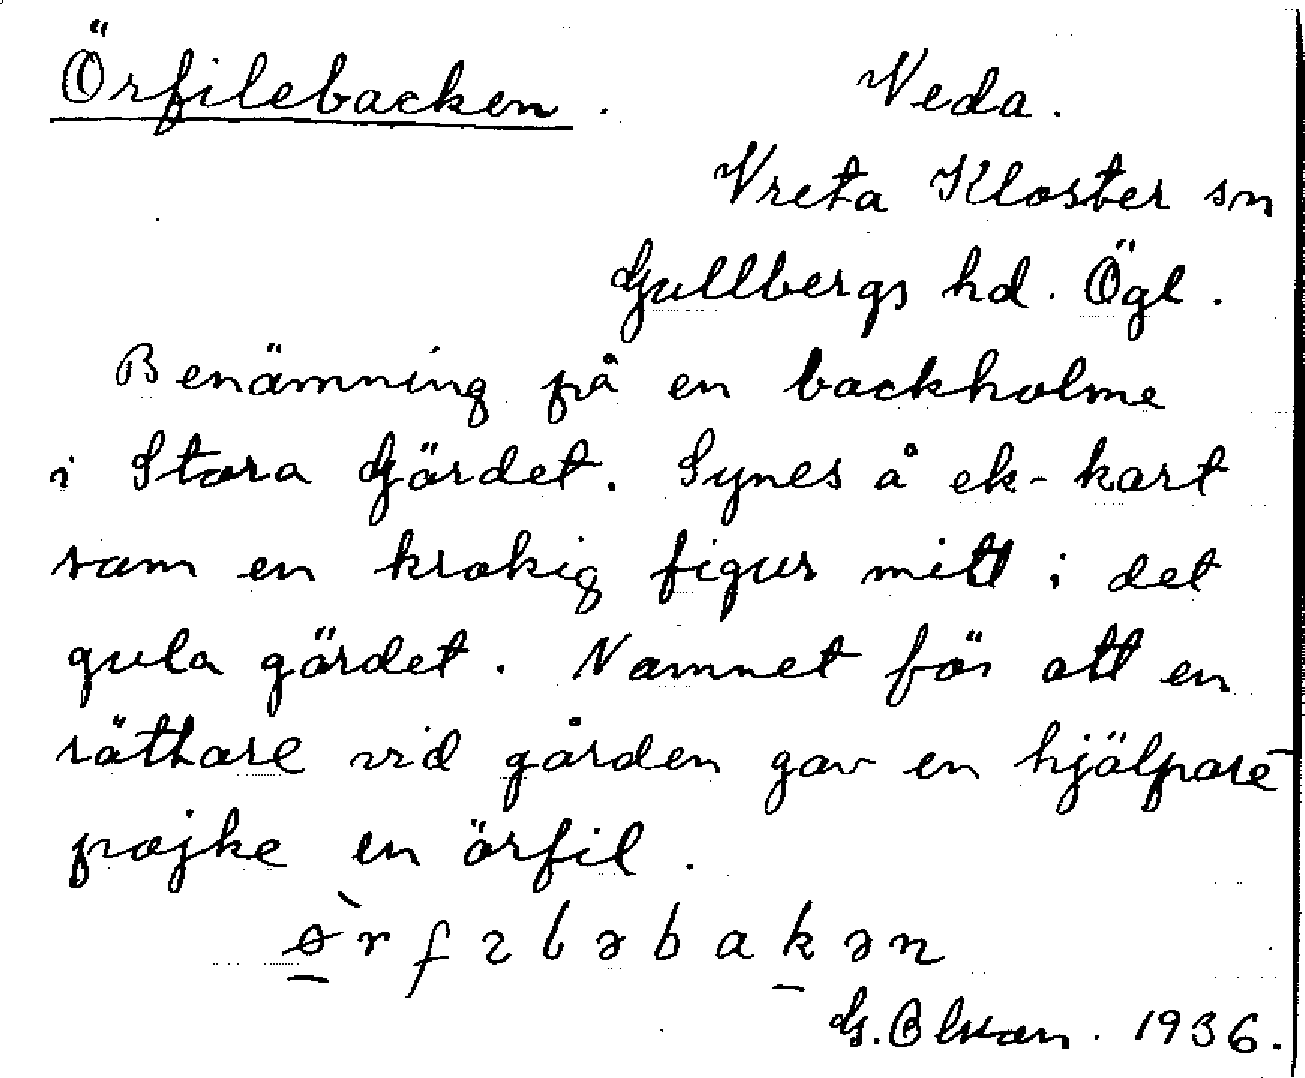 Örfilebacken. Veda.
Vreta Kloster sn
Gullbergs hd. Ögl.
Benämning på en backholme
i Stora Gärdet. Synes å ek-kart
som en krokig figur mitt i det
gula gärdet. Namnet för att en
rättare vid gården gav en hjälpare-
pojke en örfil.
G. Olsson. 1936.